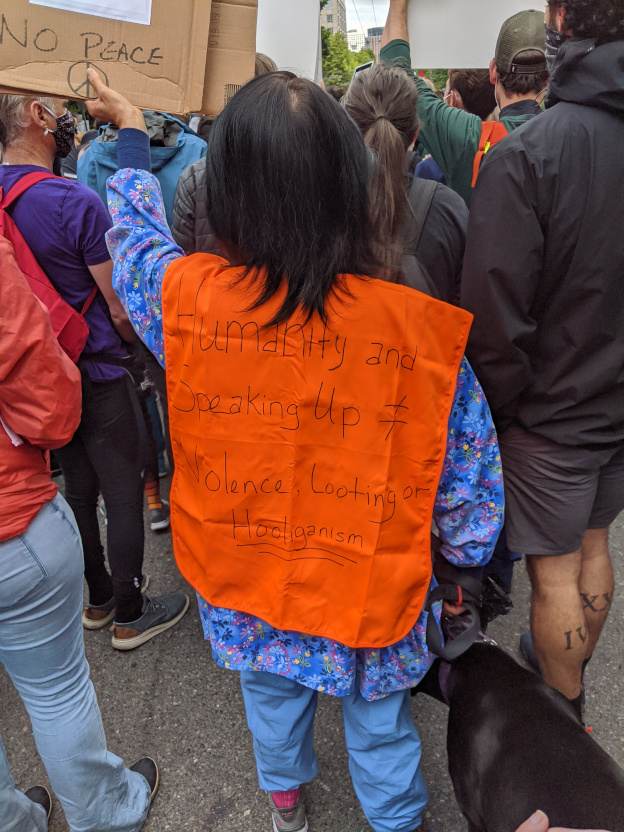 No PEACE
Humanity and
Speaking Up ≠
Violence, Looting or
Hooliganism
XV
IV